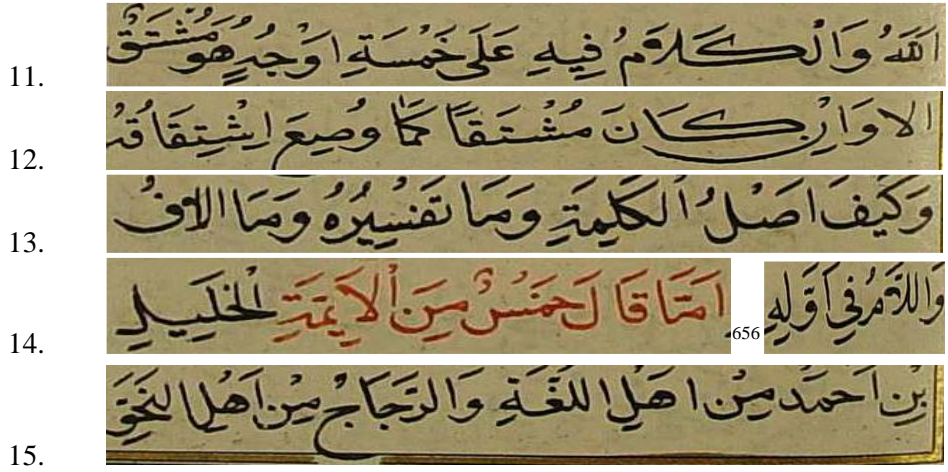 11. اللهُ وَالْكَلَامُ فِيهِ عَلَى خَمْسَةِ اَوْجُهٍ هُوَ مُشْتَقٌّ
12. الا وَاِنْ كَانَ مُشْتَقاً مِمَّا وُضِعَ اِشْتِقَاقُهُ
13. وَكَيْفَ اَصْلُ الْكَلِمَةِ وَمَا تَفْسِيرُهُ وَمَا الالفُ
14. وَاللَّامُ فِي اَوَّلِهِ 656 اَمَّا قَالَ خَمْسٌ مِنَ الْاَيِمَّةِ الْخَلِيلِ
15. بْنِ اَحْمَدَ مِنْ اَهْلِ اللُّغَةِ وَالزَّجَاجْ مِنْ اَهْلِ النَّحْوِ